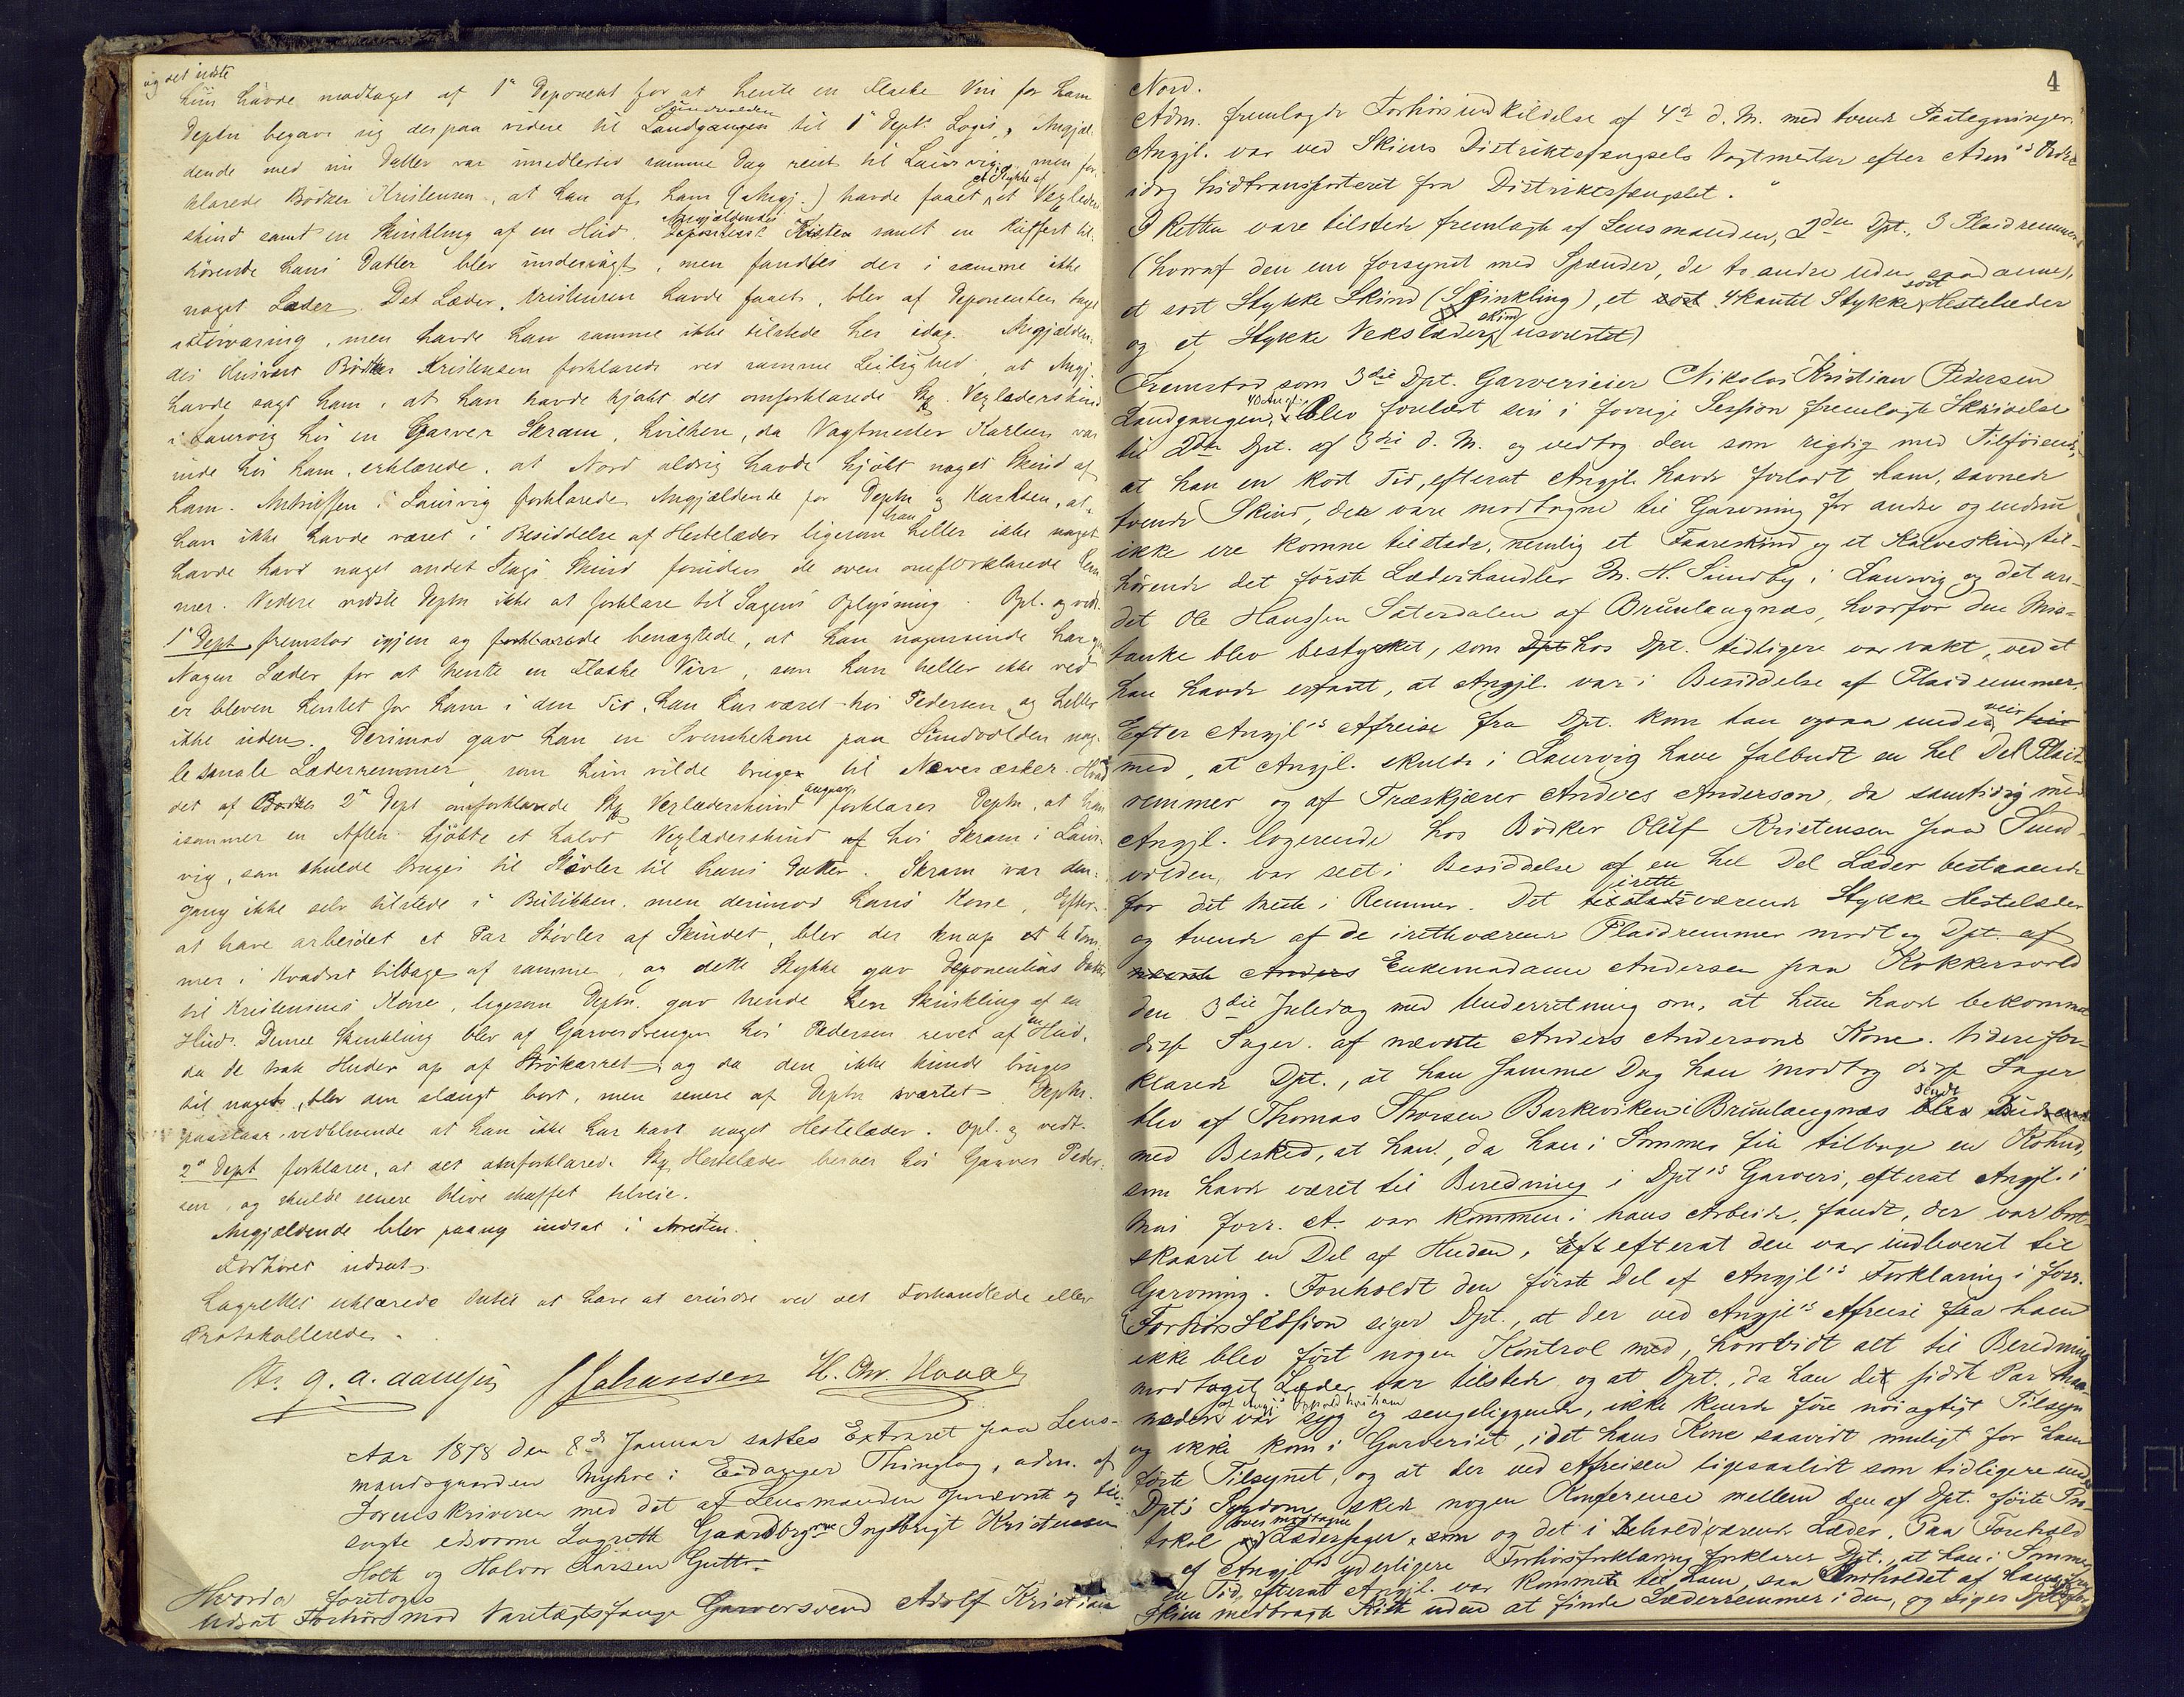 og det sidste
hun havde modtaget af 1ste Deponent for at hente en Flaske Vin for ham
Deptn begave sig derpaa videre til Landgangen Sundvolden til 1ste Depts Logis, Angjæl-
dende med sin Datter var imidlertid samme Dag reist til Laurvig, men for-
klarede Bødker Kristensen, at han af ham (Angj.) havde faaet et Stykke af et Vexleder-
skind samt en Skinkling af en Hud. Angjældendes Kiste samt en Kuffert til-
hørende hans Datter blev undersøgt, men fandtes der i samme ikke
noget Læder. Det Læder, Kristensen havde faaet, blev af Deponenten tage
i Forvaring, men havde han samme ikke tilstede her idag. Angjælden-
des Husvært Bødker Kristensen forklarede ved samme Leilighed, at Angj.
havde sagt ham, at han havde kjøbt det omforklarede Stk. Vexlæderskind
i Laurvig hos en Garver Skram, hvilken, da Vagtmester Karlsen var
inde hos ham, erklærede, at Nord aldrig havde kjøbt noget Skind af
ham. Arrestanten i Laurvig forklarede Angjældende for Deptn og Karlsen, at
han ikke havde været i Besiddelse af Hestelæder ligesom han heller ikke noget
havde havd noget andet Slags Skind foruden de oven omforklarede Rem-
mer. Videre vidste Deptn ikke at forklare til Sagens Oplysning. Opl. og vedt.
1ste Dept fremstod igjen og forklarede benægtede, at han nogensinde har givet
Nogen Læder for at hente en Flaske Vin, som han heller ikke ved
er bleven hentet for ham i den Tid, han har været hos Pedersen og heller
ikke siden. Derimod gav han en Svenskekone paa Sundvolden nog-
le smale Læderremmer som hun vilde bruge til Næveræsker. Hvad
det af Bødker 2den Dept omforklarede Stk Vexlæderskind angaar forklarer Deptn, at han
isommer en Aften kjøbte et halvt Vexlæderskind af hos Skram i Laur-
vig, som skulde bruges til Støvler til hans Datter. Skram var den-
gang ikke selv tilstede i Butikken, men derimod hans Kone. Efter
at have arbeidet et Par Støvler af Skindet, blev der knap et 6 Tom-
mer i Kvadrat tilbage af samme, og dette Stykke gav Deponentens Datter
til Kristensens Kone, ligesom Deptn. gav hende den Skinkling af en
Hud. Denne Skinkling blev af Garverdrengen hos Pedersen revet af en Hud,
da de trak Huder op af Strøkarret og da den ikke kunde bruges
til noget, blev den slængt bort, men senere af Deptn sværtet. Deptn.
paastaar vedblivende at han ikke har havt noget Hestelæder. Opl. og vedt.
2den Dept forklarer, at det omforklarede Stk. Hestelæder beroer hos Garver Peder-
sen, og skulde senere blive skaffet tilveie.
Angjældende blev paany indsat i Arresten.
Forhøret udsat.
Lagrettet erklærede Intet at have at erindre ved det Forhandlede eller
Protokollerede.
Johansen H. Chr. Houal
Aar 1878 den 8de Januar sattes Extraret paa Lens-
mandsgaarden Myhre i Eidanger Thinglag, adm. af
Sorenskriveren med det af Lensmanden opnævnte og til-
sagte edsvorne Lagrett Gaardbrgrne Ingebrigt Kristensen
Holte og Halvor Larsen Gutte.
Hvorda foretoges
Udsat Forhør mod Varetægtsfange Garversvend Adolf Kristian
4
Nord.
Adm. fremlagde Forhørsudskildelse af 4de d. M. med tvende Paategninger.
Angjl. var ved Skiens Distriktsfængsels Vagtmester efter Adms Ordre
idag hidtransporteret fra Distriktsfængslet.
I Retten vare tilstede fremlagt af Lensmanden, 2den Dpt., 3 Plaidremmer
(hvoraf den ene forsynet med Spænder, de to andre uden saadanne),
et sort Stykke Skind (Skinkling), et sort 4kantet Stykke sort Hestelæder
og et Stykke Vekslæderskind (usværtet)
Fremstod som 3die Dpt. Garverieier Nikolai Kristian Pedersen
Landgangen, 40 Aar gl. Blev forelæst sin i forrige Session fremlagte Skrivelse
til 2den Dpt. af 3die d. M. og vedtog den som rigtig med Tilføiende,
at han en kort Tid, efterat Angjl. havde forladt ham, savnede
tvende Skind, der vare modtagne til Garvning for andre og endnu
ikke ere komne tilstede, nemlig et Faareskind og et Kalveskind, til-
hørende det første Læderhandler M. H. Sundby i Laurvig og det an-
det Ole Hanssen Säterdalen af Brunlaugnæs, hvorfor den Mis-
tanke blev bestyrket, som Dpt hos Dpt. tidligere var vakt, ved at
han havde erfaret, at Angjl. var i Besiddelse af Plaidremmer.
Efter Angjls Afreise fra Dpt. kom han ogsaa underveir
med, at Angjl. skulde i Laurvig have falbudt en hel Del Plaid-
remmer og af Træskjærer Anders Anderson, da samtidig med
Angjl. logerende hos Bødker Oluf Kristensen paa Sund-
volden, var seet i Besiddelse af en hel Del Læder bestaaende
for det meste i Remmer. Det tilstede iretteværende Stykke Hestelæder
og tvende af de iretteværende Plaidremmer modtog Dpt. af
nævnte Anders Enkemadame Andersen paa Kokkersvold
den 3die Juledag med Underretning om, at hun havde bekommet
disse Sager af nævnte Anders Andersons Kone. Videre for-
klarede Dpt., at han samme Dag han modtog disse Sager
blev af Thomas Thorsen Barkeviken i Brunlaugnæs blev sendt Bud
med Besked, at han, da han i Sommer fik tilbage en Kohud,
som havde været til Beredning i Dpts Garveri, efterat Angjl. i
Mai forr. A. var kommen i hans Arbeide, fandt, der var bort-
skaaret en Del af Huden, Eft efterat den var indleveret til
Garvning. Foreholdt den første Del af Angjls Forklaring i forr.
Forhørs Session siger Dpt., at der ved Angjls Afreise fra ham
ikke blev ført nogen Kontrol med, hvorvidt alt til Beredning
modtaget Læder var tilstede og at Dpt., da han det sidste Par Maa-
neder af Angjls Ophold hos ham var syg og sengeliggende, ikke kunde føre nøiagtigt Tilsyn
og ikke kom i Garveriet, idet hans Kone saavidt muligt for ham
førte Tilsynet, og at der ved Afreisen ligesaalidt som tidligere under
Dpts Sygdom skede nogen Konference mellem den af Dpt. førte Pro-
tokol over modtagne Lædersager, som og det i Behold værende Læder. Paa Forehold
af Angjls yderligere Forhørsforklaring forklarer Dpt., at han i Sommer
en Tid, efterat Angjl. var kommen til ham, saa Indholdet af hans fra
Skien medbragte Kiste uden at finde Læderremmer i den, og siger Dpt.